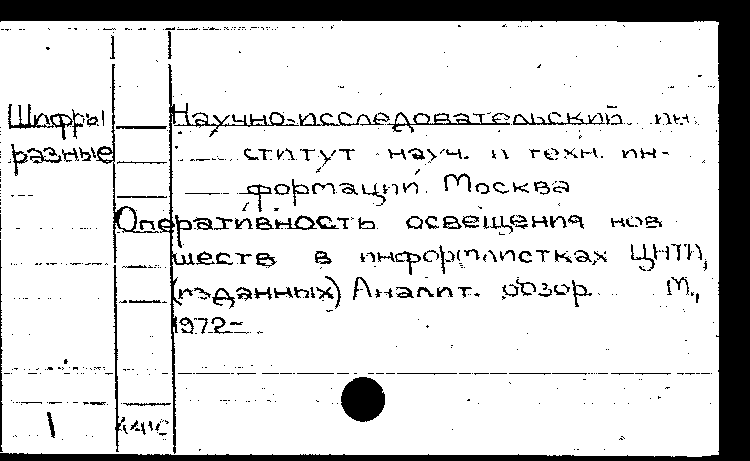 Шифры
разные
Научно-исследовательский ин
ститут науч. и техн. ин-
формации. Москва
Оперативность освещения нов
шеств в информлистках ЦНТИ,
(изданных) Аналит. обзор. М.,
1972-
1